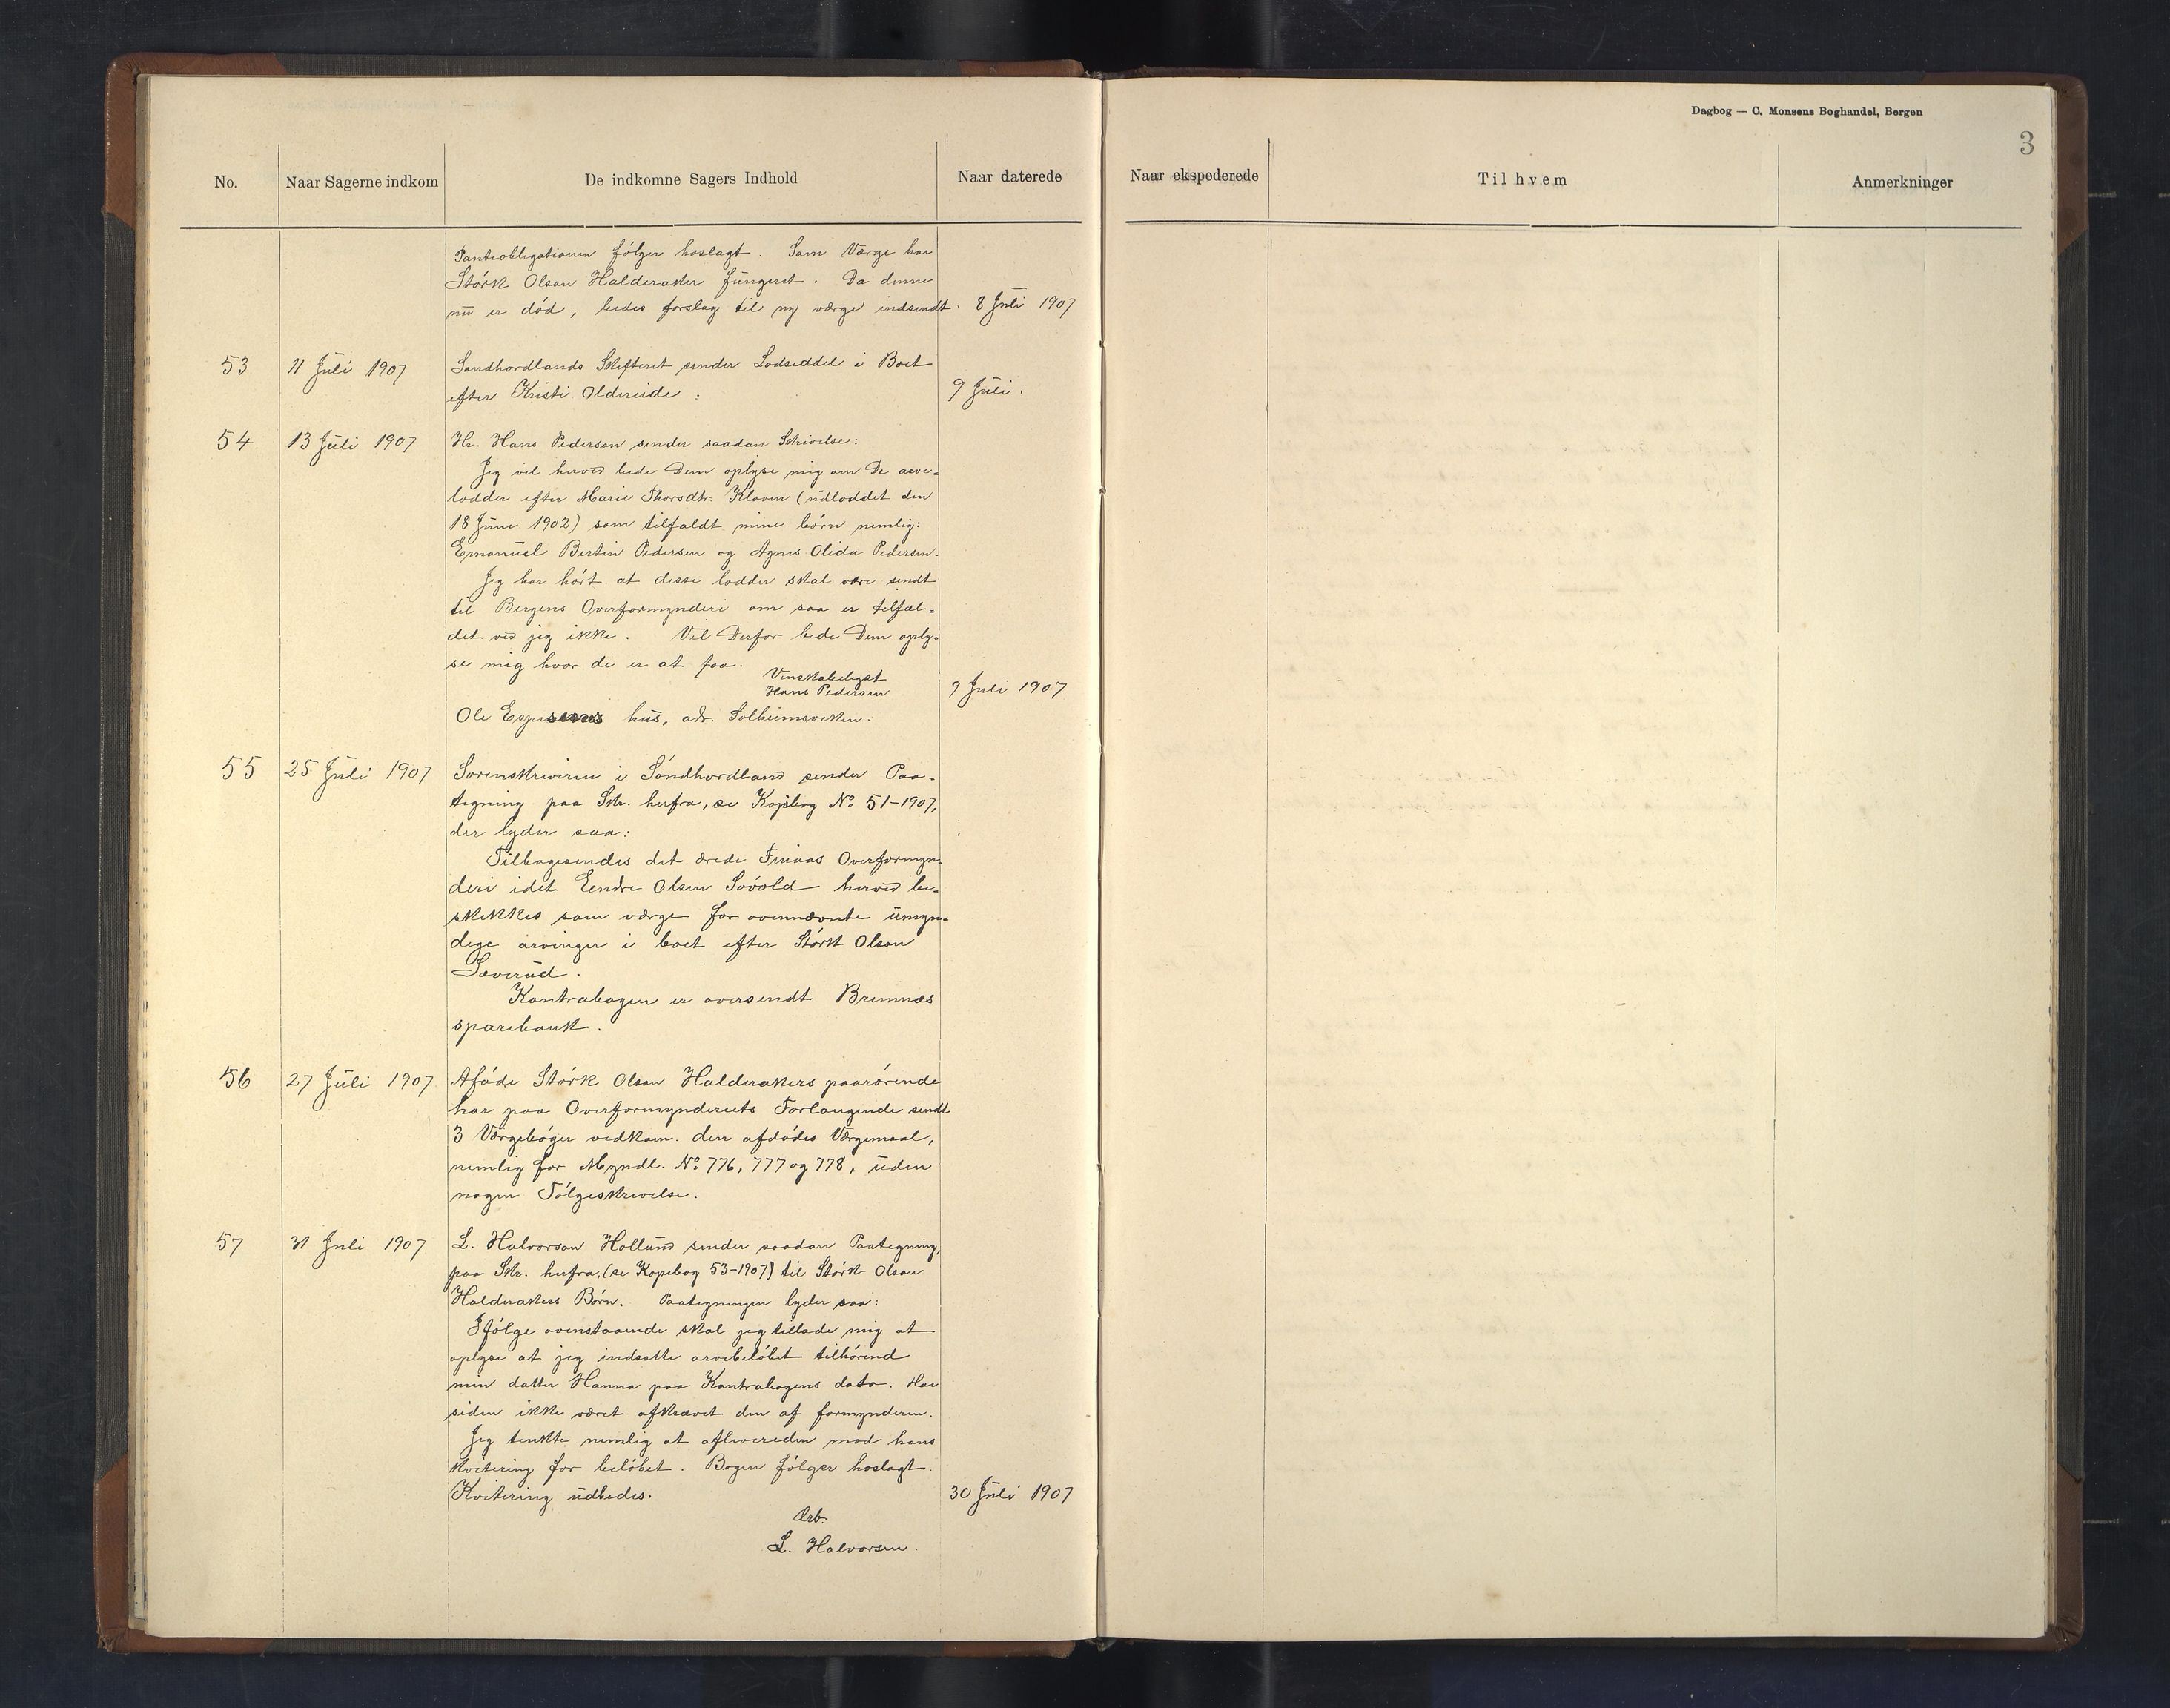 Dagbog — C. Monsens Boghandel, Bergen
3
No. Naar Sagerne indkom De indkomne Sagers Indhold Naar daterede Naar ekspederede Til hvem Anmerkninger
Pantobligationen følger hoslagt. Som Værge har
Størk Olsen Halderaker fungeret. Da denne
nu er død, bedes forslag til ny værge indsendt. 8 Juli 1907
53 11 Juli 1907 Søndhordlands Skifteret sender Lodseddel i Boet
efter Kristi Oldereide: 9 Juli.
54 13 Juli 1907 Hr. Hans Pedersen sender saadan Skrivelse:
Jeg vil herved bede Dem oplyse mig om De arve-
lodder efter Marie Thorsdtr. Kloven (udloddet den
18 Juni 1902) som tilfaldt mine børn nemlig:
Emanuel Bertin Pedersen og Agnes Olida Pedersen.
Jeg har hørt at disse lodder skal være sendt
til Bergens Overformynderi om saa er tilfæl-
det ved jeg ikke. Vil Derfor bede Dem oply-
se mig hvor de er at faa.
Venskabeligst
Hans Pedersen 9 Juli 1907
Ole hus, adr. Solheimsviken.
55 25 Juli 1907 Sorenskriveren i Søndhordland sender Paa-
tegning paa Skr. herfra, se Kopibog No. 51-1907,
der lyder saa:
Tilbagesendes det ærede Finaas Overformyn-
deri idet Endre Olsen Søvold herved be-
skikkes som værge for ovennævnte umyn-
dige arvinger i boet efter Størk Olsen
Sæverud.
Kontrabogen er oversendt Bremnæs
sparebank.
56 27 Juli 1907 Aføde Størk Olsen Halderakers paarørende
har paa Overformynderiets Forlangende sendt
3 Værgebøger vedkom. den afdødes Værgemaal,
nemlig for Myndl. No. 776, 777 og 778, uden
nogen Følgeskrivelse.
57 31 Juli 1907 L. Halvorsen Hollund sender saadan Paategning,
paa Skr. herfra, (se Kopibog 53-1907) til Størk Olsen
Halderakers Børn. Paategningen lyder saa:
Ifølge ovenstaaende skal jeg tillade mig at
oplyse at jeg indsatte arvebeløbet tilhørend
min datter Hanna paa Kontrabogens dato. Har
siden ikke været afkrævet den af formynderen.
Jeg tenkte nemlig at aflevereden mod hans
kvitering for beløbet. Bogen følger hoslagt.
Kvitering udbedes. 30 Juli 1907
Ærb.
L. Halvorsen.